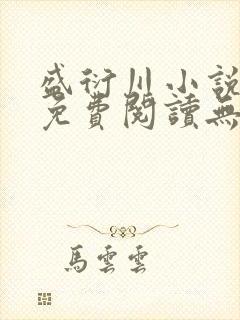 盛衍川小說
免費閱讀無
馬雲雲